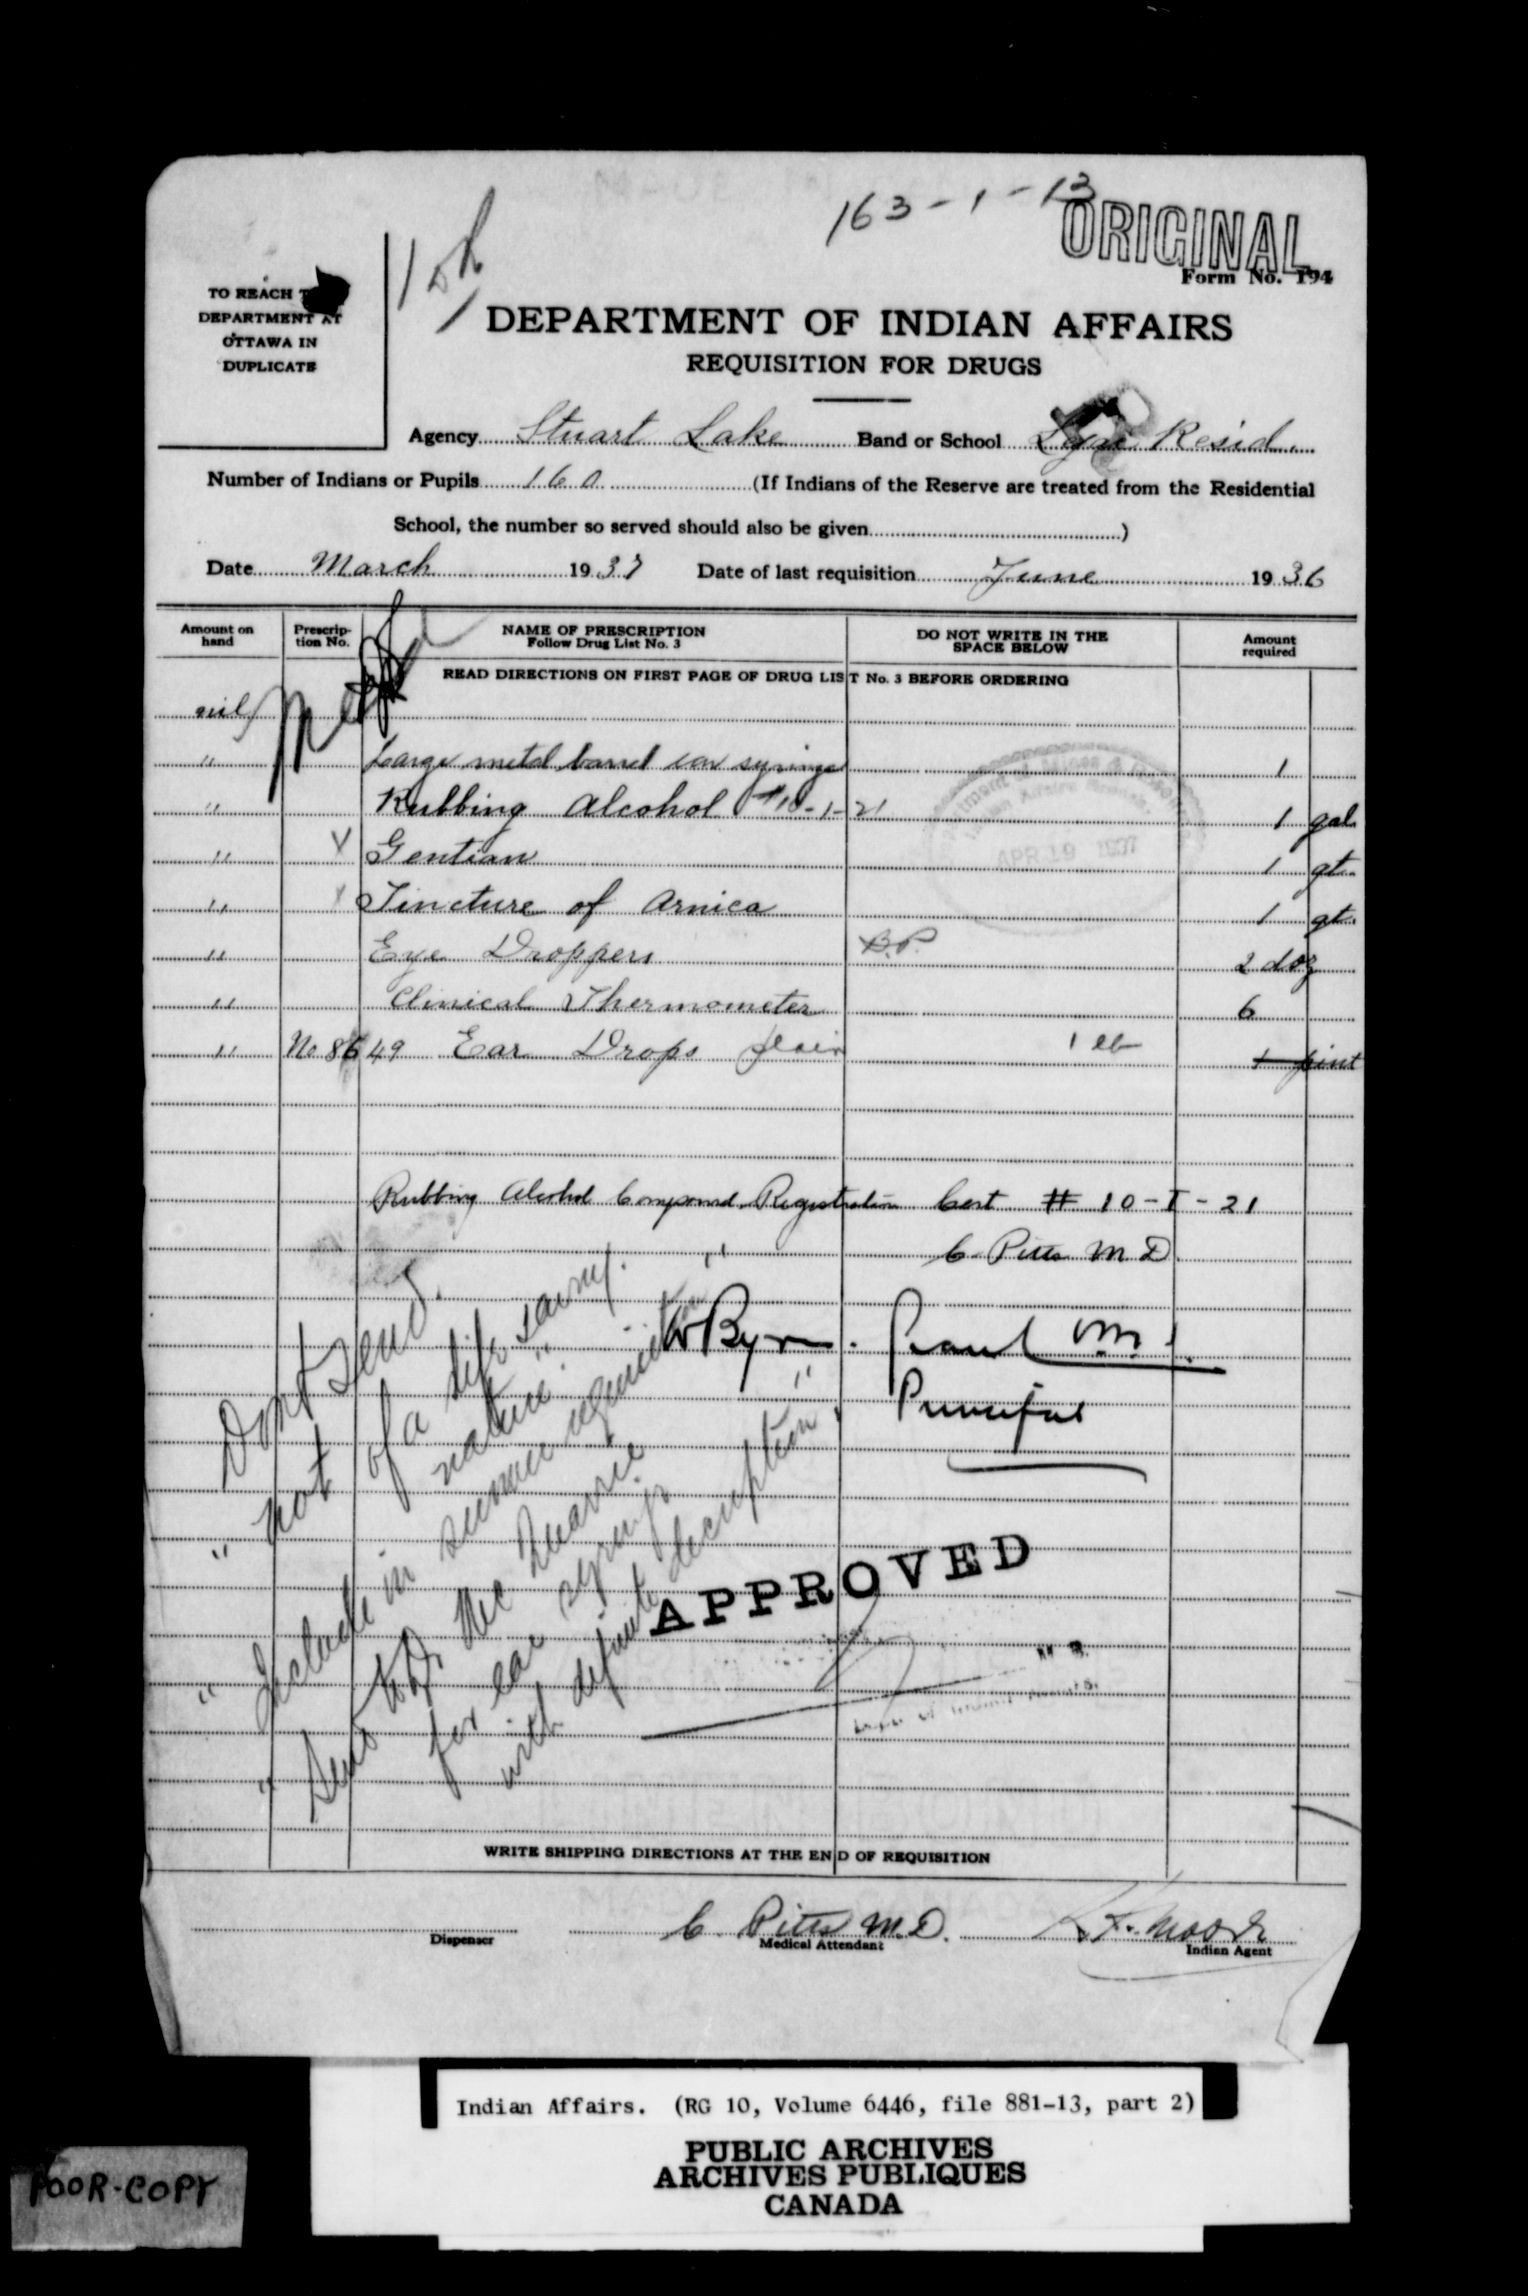 163-1-13
ORIGINAL
Form No. 194
TO REACH
DEPARTMENT AT
OTTAWA IN
DUPLICATE
DEPARTMENT OF INDIAN AFFAIRS
REQUISITION FOR DRUGS
Agency Stuart Lake Band or School Resid.
Number of Indians or Pupils 160 (If Indians of the Reserve are treated from the Residential
School, the number so served should also be given )
Date March 1937 Date of last requisition June 1936
Amount on hand Prescription No. NAME OF PRESCRIPTION Follow Drug List No. 3 DO NOT WRITE IN THE SPACE BELOW Amount required
READ DIRECTIONS ON FIRST PAGE OF DRUG LIST No. 3 BEFORE ORDERING
nil
" Large metal barrel ear syringe 1
" Rubbing Alcohol #10-1-21 1 gal
" Gentian 1 qt.
" Tincture of Arnica 1 qt.
APR 19 1937
" Eye Droppers B.P. 2 doz
" Clinical Thermometer 6
" No 8649 Ear Drops plain 1 lb 1 pint
Rubbing Alcohol Compound Registration Cert # 10-I-21
" C. Pitts M D
Principal
Dont send.
"not of a life saving
nature."
"Include in summer requisition"
"Send to Dr. Mc Quarrie
for ear syringe
with definite description".
APPROVED
WRITE SHIPPING DIRECTIONS AT THE END OF REQUISITION
C. Pitts M.D.
Dispenser Medical Attendant Indian Agent
Indian Affairs. (RG 10, Volume 6446, file 881-13, part 2)
PUBLIC ARCHIVES
ARCHIVES PUBLIQUES
CANADA
POOR-COPY